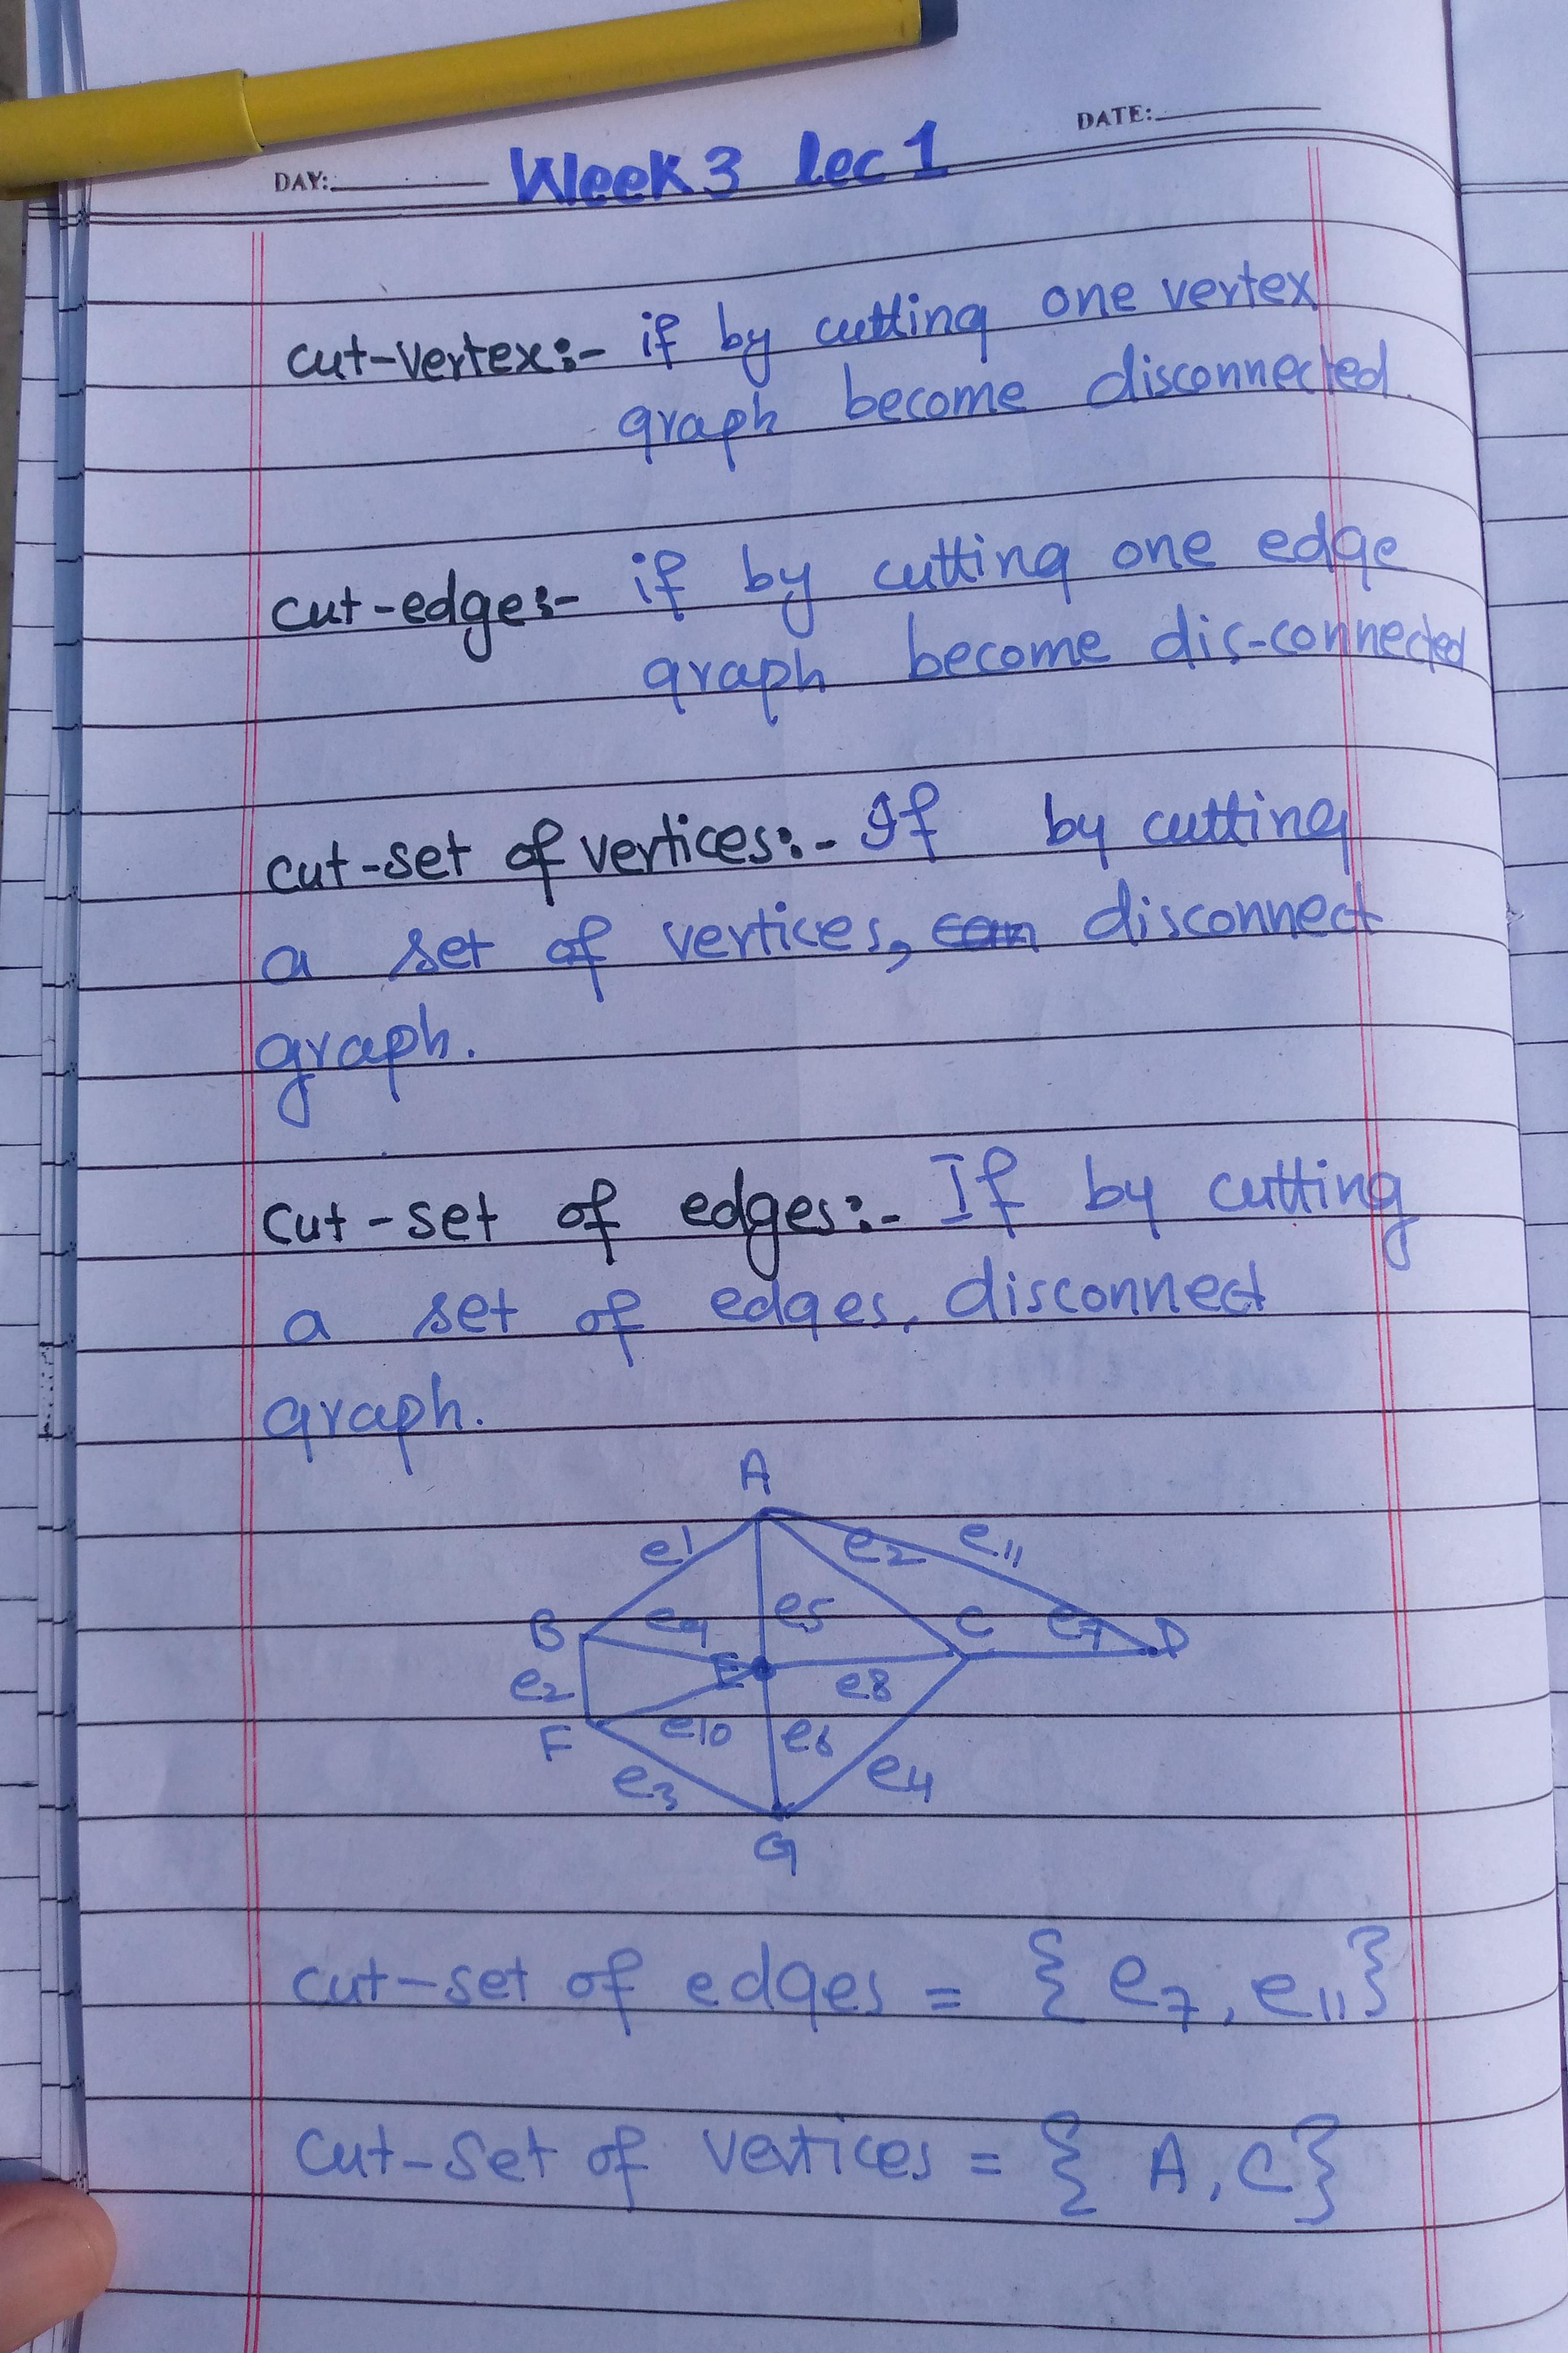 DATE:
DAY: Week 3 lec 1
cut-vertex:- if by cutting one vertex
graph become disconnected.
cut-edge:- if by cutting one edge
graph become dis-connected
cut-set of vertices:- If by cutting
a set of vertices, can disconnect
graph.
cut-set of edges:- If by cutting
a set of edges, disconnect
graph.
A
e1 e2 e11
B e9 e5 C e7 D
e2 E e8
F e10 e6
e3 e4
G
cut-set of edges = { e7, e11}
cut-set of vertices = { A, C}